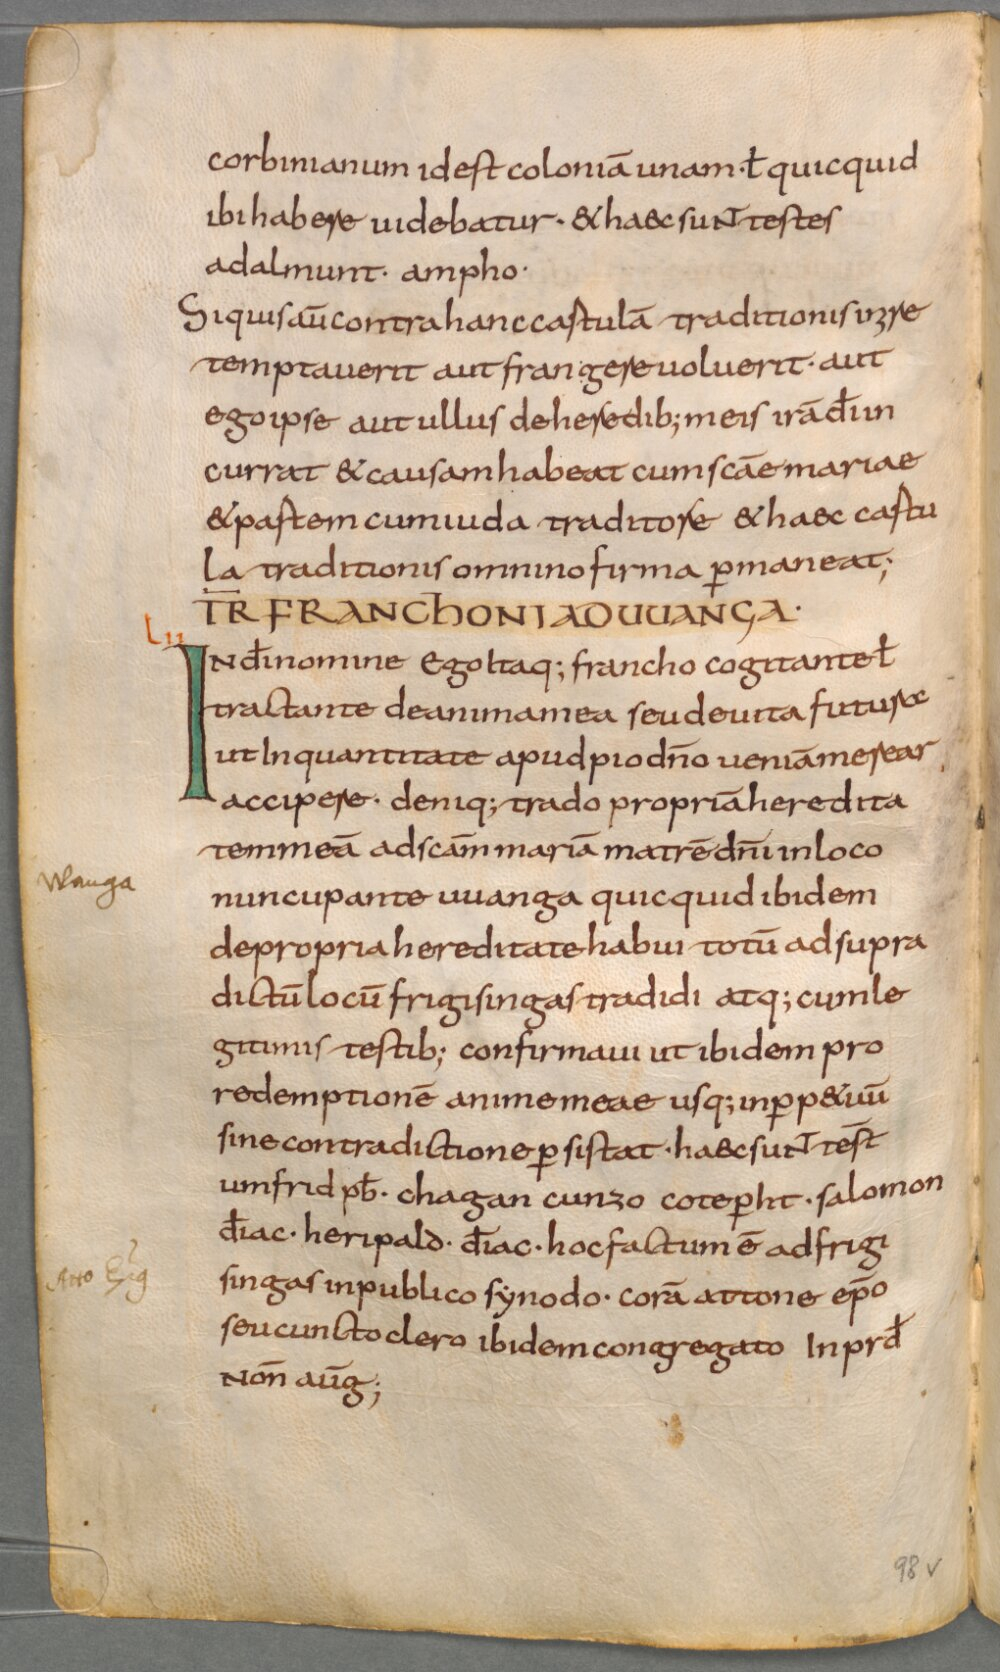 corbinianum idest coloniā unam· ł quicquid
ibi habere uidebatur· & haec sunt testes
adalmunt· ampho·
Siquis aū contra hanc cartulā traditionis inre
temptauerit aut frangere voluerit· aut
ego ipse aut ullus de heredib; meis irā dī in
currat & causam habeat cum scāe mariae
& partem cum iuda traditore & haec cartu
la traditionis omnino firma p̄maneat;
TR̄ FRANCHONI AD UUANGA·
LII
IN dī nomine Ego itaq; francho cogitante ł
tractante de anima mea seu de uita futurae
ut In quantitate apud pio dn̄o ueniā merear
accipere· deniq; trado propriā heredita
tem meā ad scām mariā matrē dn̄i in loco
Wanga
nuncupante uuanga quicquid ibidem
de propria hereditate habui totū ad supra
dictū locū frigisingas tradidi atq; cum le
gitimis testib; confirmaui ut ibidem pro
redemptionē anime meae usq; in p̄p&uū
sine contradictione p̄sistat· haec sunt test̄
umfrid pb̄· chagan cunzo cotep̄ht· salomon
diāc· heripald· diāc· hoc factum ē ad frigi
Atto Ep̄s Frig
singas in publico synodo· corā attone ep̄o
seu cuncto clero ibidem congregato In prd̄
Non̄ aūg;
98 v